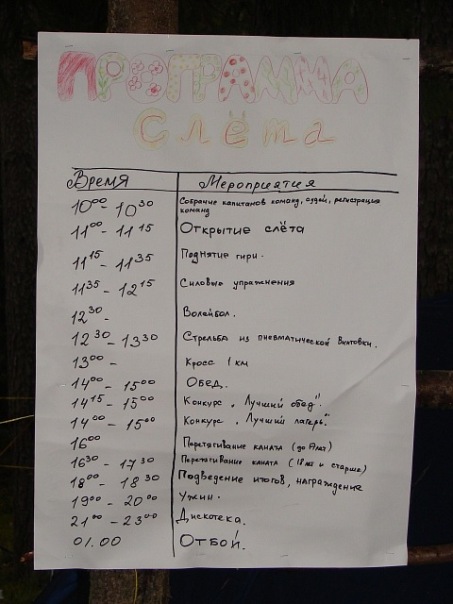 ПРОГРАММА
Слёта
Время Мероприятия
10⁰⁰ - 10³⁰ Собрание капитанов команд, судей, регистрация
команд
11⁰⁰ - 11¹⁵ Открытие слёта
11¹⁵ - 11³⁵ Поднятие гири.
11³⁵ - 12¹⁵ Силовые упражнения
12³⁰ - Волейбол.
12³⁰ - 13³⁰ Стрельба из пневматической винтовки.
13⁰⁰ - Кросс 1 км
14⁰⁰ - 15⁰⁰ Обед.
14¹⁵ - 15⁰⁰ Конкурс „Лучший обед"
14⁰⁰ - 15⁰⁰ Конкурс „Лучший лагерь"
16⁰⁰ Перетягивание каната (до 17 лет)
16³⁰ - 17³⁰ Перетягивание каната (18 лет и старше)
18⁰⁰ - 18³⁰ Подведение итогов, награждение
19⁰⁰ - 20⁰⁰ Ужин.
21⁰⁰ - 23⁰⁰ Дискотека.
01.00 Отбой.